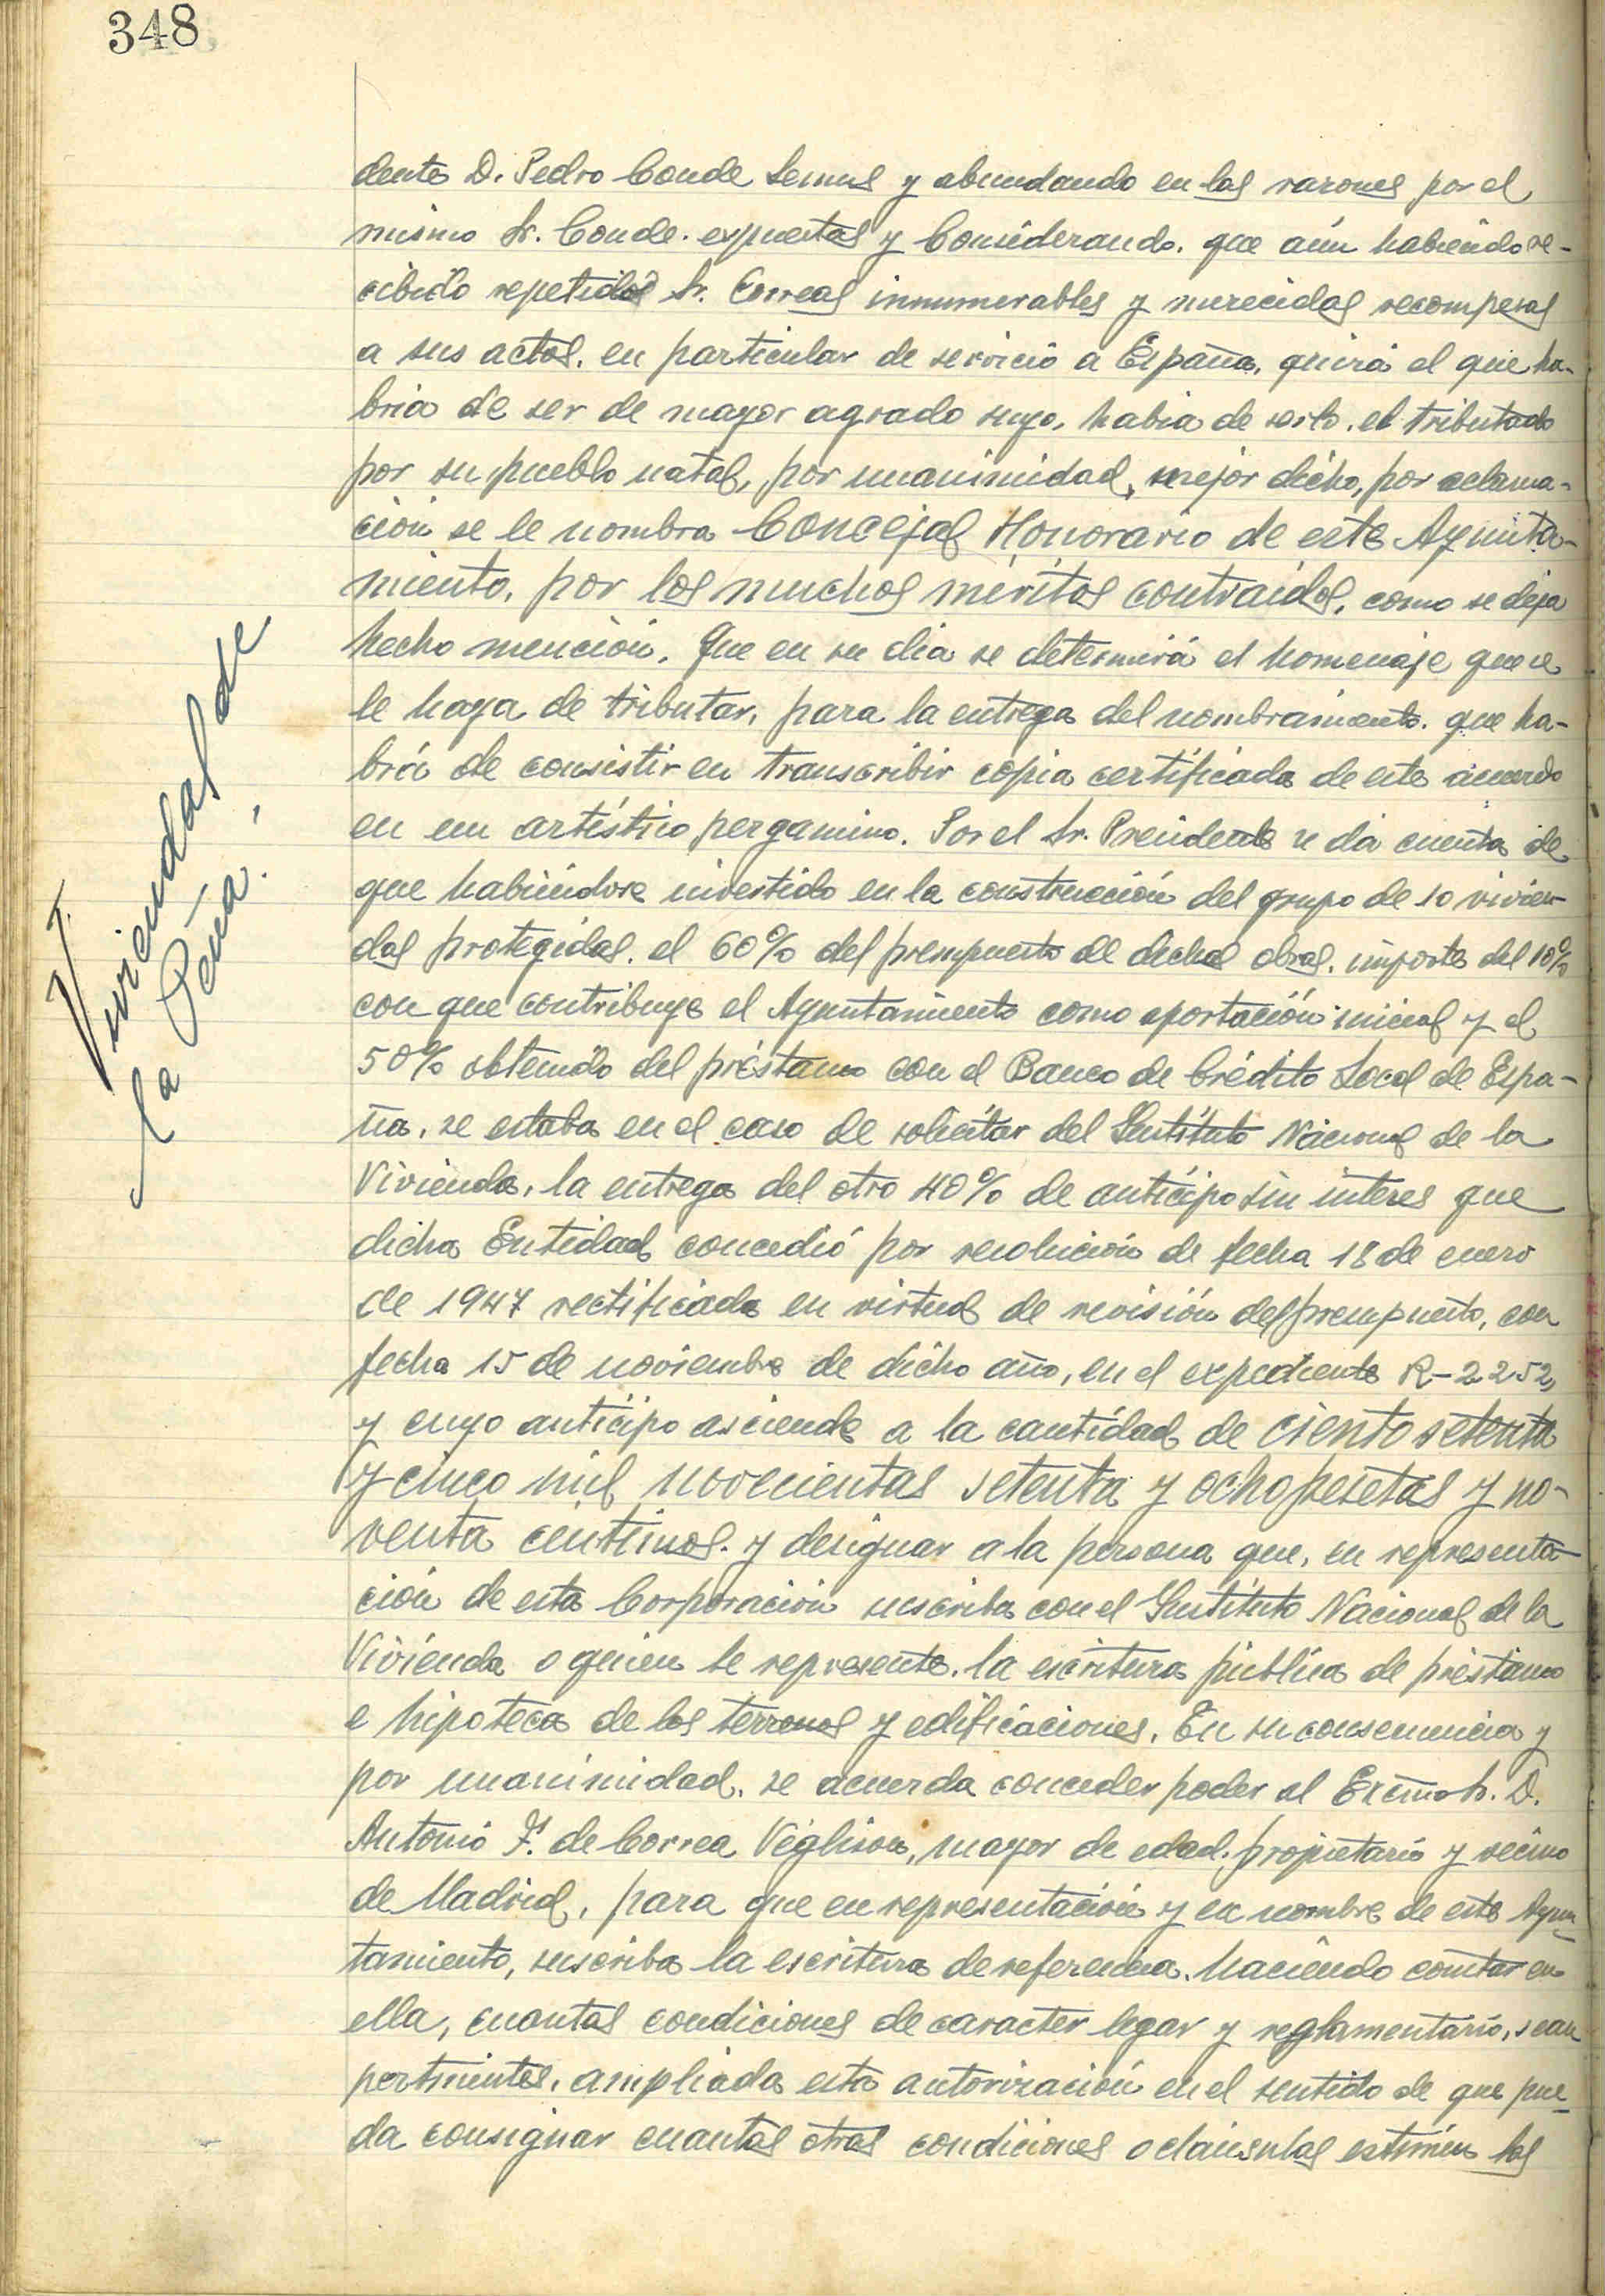 348
dente D. Pedro Conde Lemus y abundando en las razones por el
mismo Sr. Conde. expuestas y Considerando. que aún habiendo re-
cibido repetidos Sr. Correas innumerables y merecidas recompesas
a sus actos. en particular de servicio a España, quizá el que ha-
bria de ser de mayor agrado suyo, habia de serlo. el tributado
por su pueblo natal, por unanimidad, mejor dicho, por aclama-
ción se le nombra Concejal Honorario de este Ayunta-
miento, por los muchos méritos contraídos, como se deja
hecho mención. Que en su dia se determirá el homenaje que se
le haya de tributar, para la entrega del nombramiento. que ha-
brá de consistir en transcribir copia certificada de este acuerdo
en un artístico pergamino. Por el Sr. Presidente se da cuenta de
que habiéndose invertido en la construcción del grupo de 10 vivien-
das protegidas. el 60% del presupuesto de dichas obras. importe del 10%
con que contribuye el Ayuntamiento como aportación inicial y el
50% obtenido del préstamo con el Banco de Crédito Local de Espa-
ña, se estaba en el caso de solicitar del Instituto Nacional de la
Vivienda, la entrega del otro 40% de anticipo sin interes que
dicha Entidad concedió por resolución de fecha 18 de enero
de 1947 rectificada en virtud de revisión del presupuesto, con
fecha 15 de noviembre de dicho año, en el expediente R-2252,
y cuyo anticipo asciende a la cantidad de ciento setenta
y cinco mil novecientas setenta y ocho pesetas y no-
venta centimos. y designar a la persona que, en representa-
ción de esta Corporación suscriba con el Instituto Nacional de la
Vivienda o quien le represente. la escritura pública de préstamo
e hipoteca de los terrenos y edificaciones. En su consecuencia y
por unanimidad. se acuerda conceder poder al Excmo Sr. D.
Antonio F. de Correa Véglison, mayor de edad, propietario y vecino
de Madrid, para que en representación y en nombre de este Ayun-
tamiento, suscriba la escritura de referencia. haciendo constar en
ella, cuantas condiciones de caracter legar y reglamentario, sean
pertinentes, ampliada esta autorización en el sentido de que pue-
da consignar cuantas otras condiciones o claúsulas estimen las
Viviendas de
la Peña.